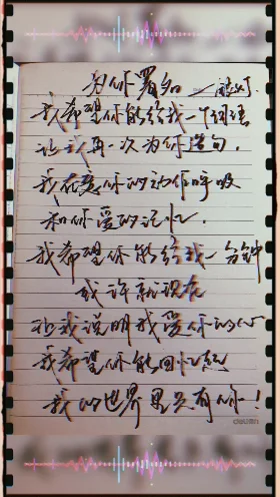 为你署名
我希望你能给我一个词语
让我再一次为你造句.
我在爱你的动作呼吸
和你爱的记忆.
我希望你能给我一分钟
或许就现在
让我说明我爱你的心
我希望你能回忆起
我的世界里只有你!